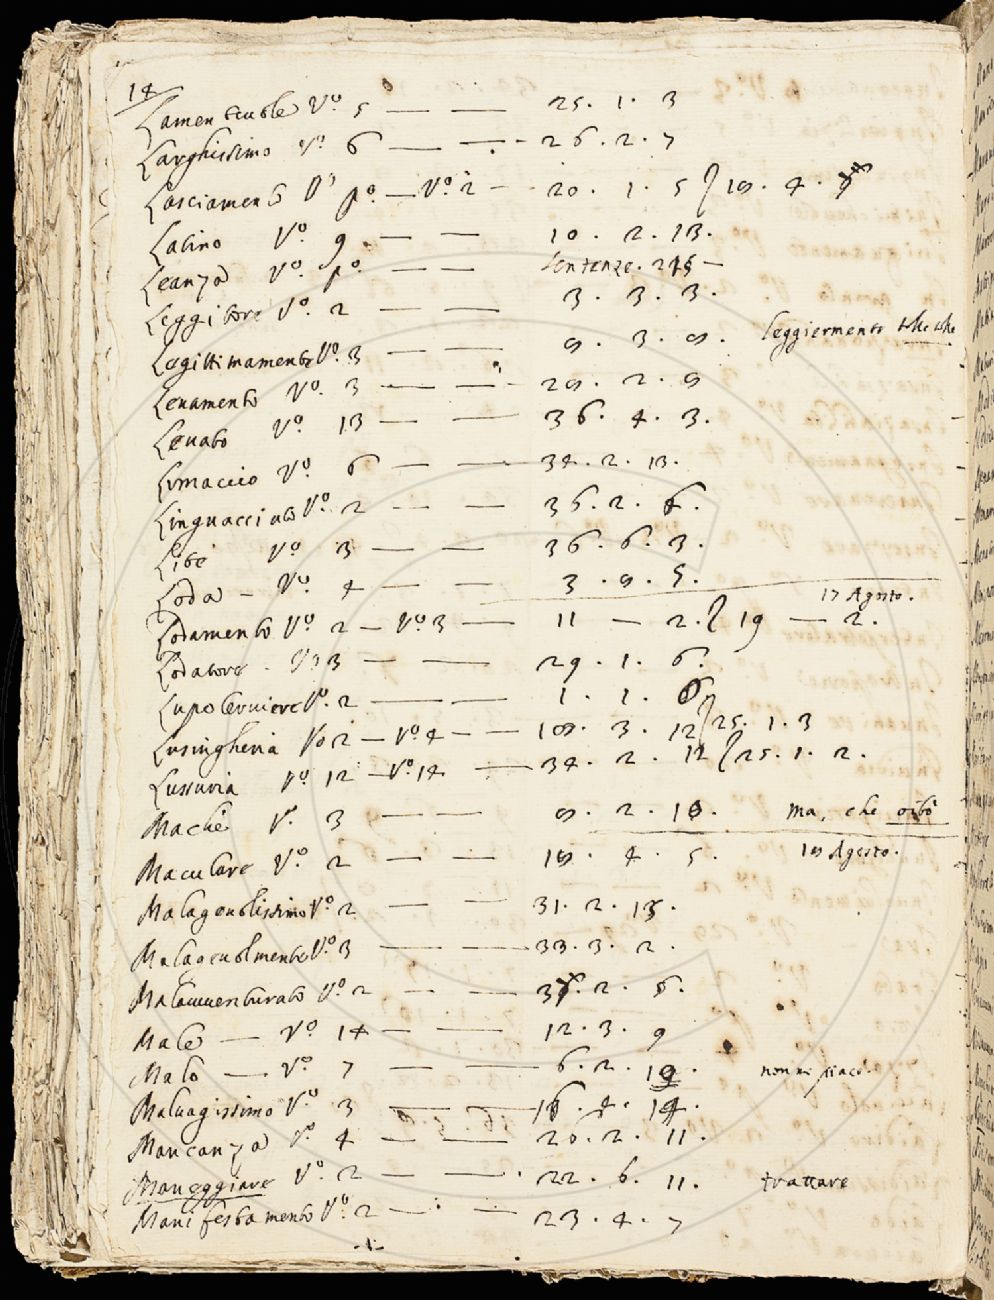 14
Lamentevole Vo. 5 — — 25. 1. 3
Larghissimo Vo. 6 — — 26. 2. 7
Lasciamento Vo po. — Vo. 2 — 20. 1. 5 / 18. 4.
Latino Vo. 9 — — 10. 2. 13.
Leanza Vo. po. — — Sentenze. 215 —
Leggitore Vo. 2 — — 3. 3. 3.
Legittimamente Vo. 3 — — 8. 3. 8. leggiermente
Levamento Vo. 3 — — 28. 2. 8
Levato Vo. 13 — — 36. 4. 3.
Limaccio Vo. 6 — — 34. 2. 13.
Linguacciuto Vo. 2 — — 35. 2. 6.
Vo. 3 — — 36. 6. 3.
Loda — Vo. 4 — — 3. 8. 5.
17 Agosto.
Lodamento Vo. 2 — Vo 3 — 11 — 2. / 19 — 2.
Lodatore — Vo 3 — — 29. 1. 6.
Lupo Cerviere Vo. 2 — — 1. 1. 6
Lusingheria Vo 2 — Vo. 4 — — 18. 3. 12 / 25. 1. 3
Lussuria Vo. 12 — Vo. 14 — 34. 2. 12 / 25. 1. 2.
Machè Vo. 3 — — 8. 2. 18. ma, che oibò
Maculare Vo. 2 — — 18. 4. 5. 18 Agosto.
Malagevolissimo Vo. 2 — — 31. 2. 13.
Malagevolmente Vo. 3 — — 33. 3. 2.
Malavventurato Vo. 2 — — 2. 6.
Male — Vo. 14 — — 12. 3. 9
Malo — Vo. 7 — — 6. 2. 19. non mi piace.
Malvagissimo Vo. 3 — 16. 4. 14.
Mancanza Vo. 4 — — 26. 2. 11.
Maneggiare Vo. 2 — — 22. 6. 11. trattare
Manifestamento Vo. 2 — — 23. 4. 7